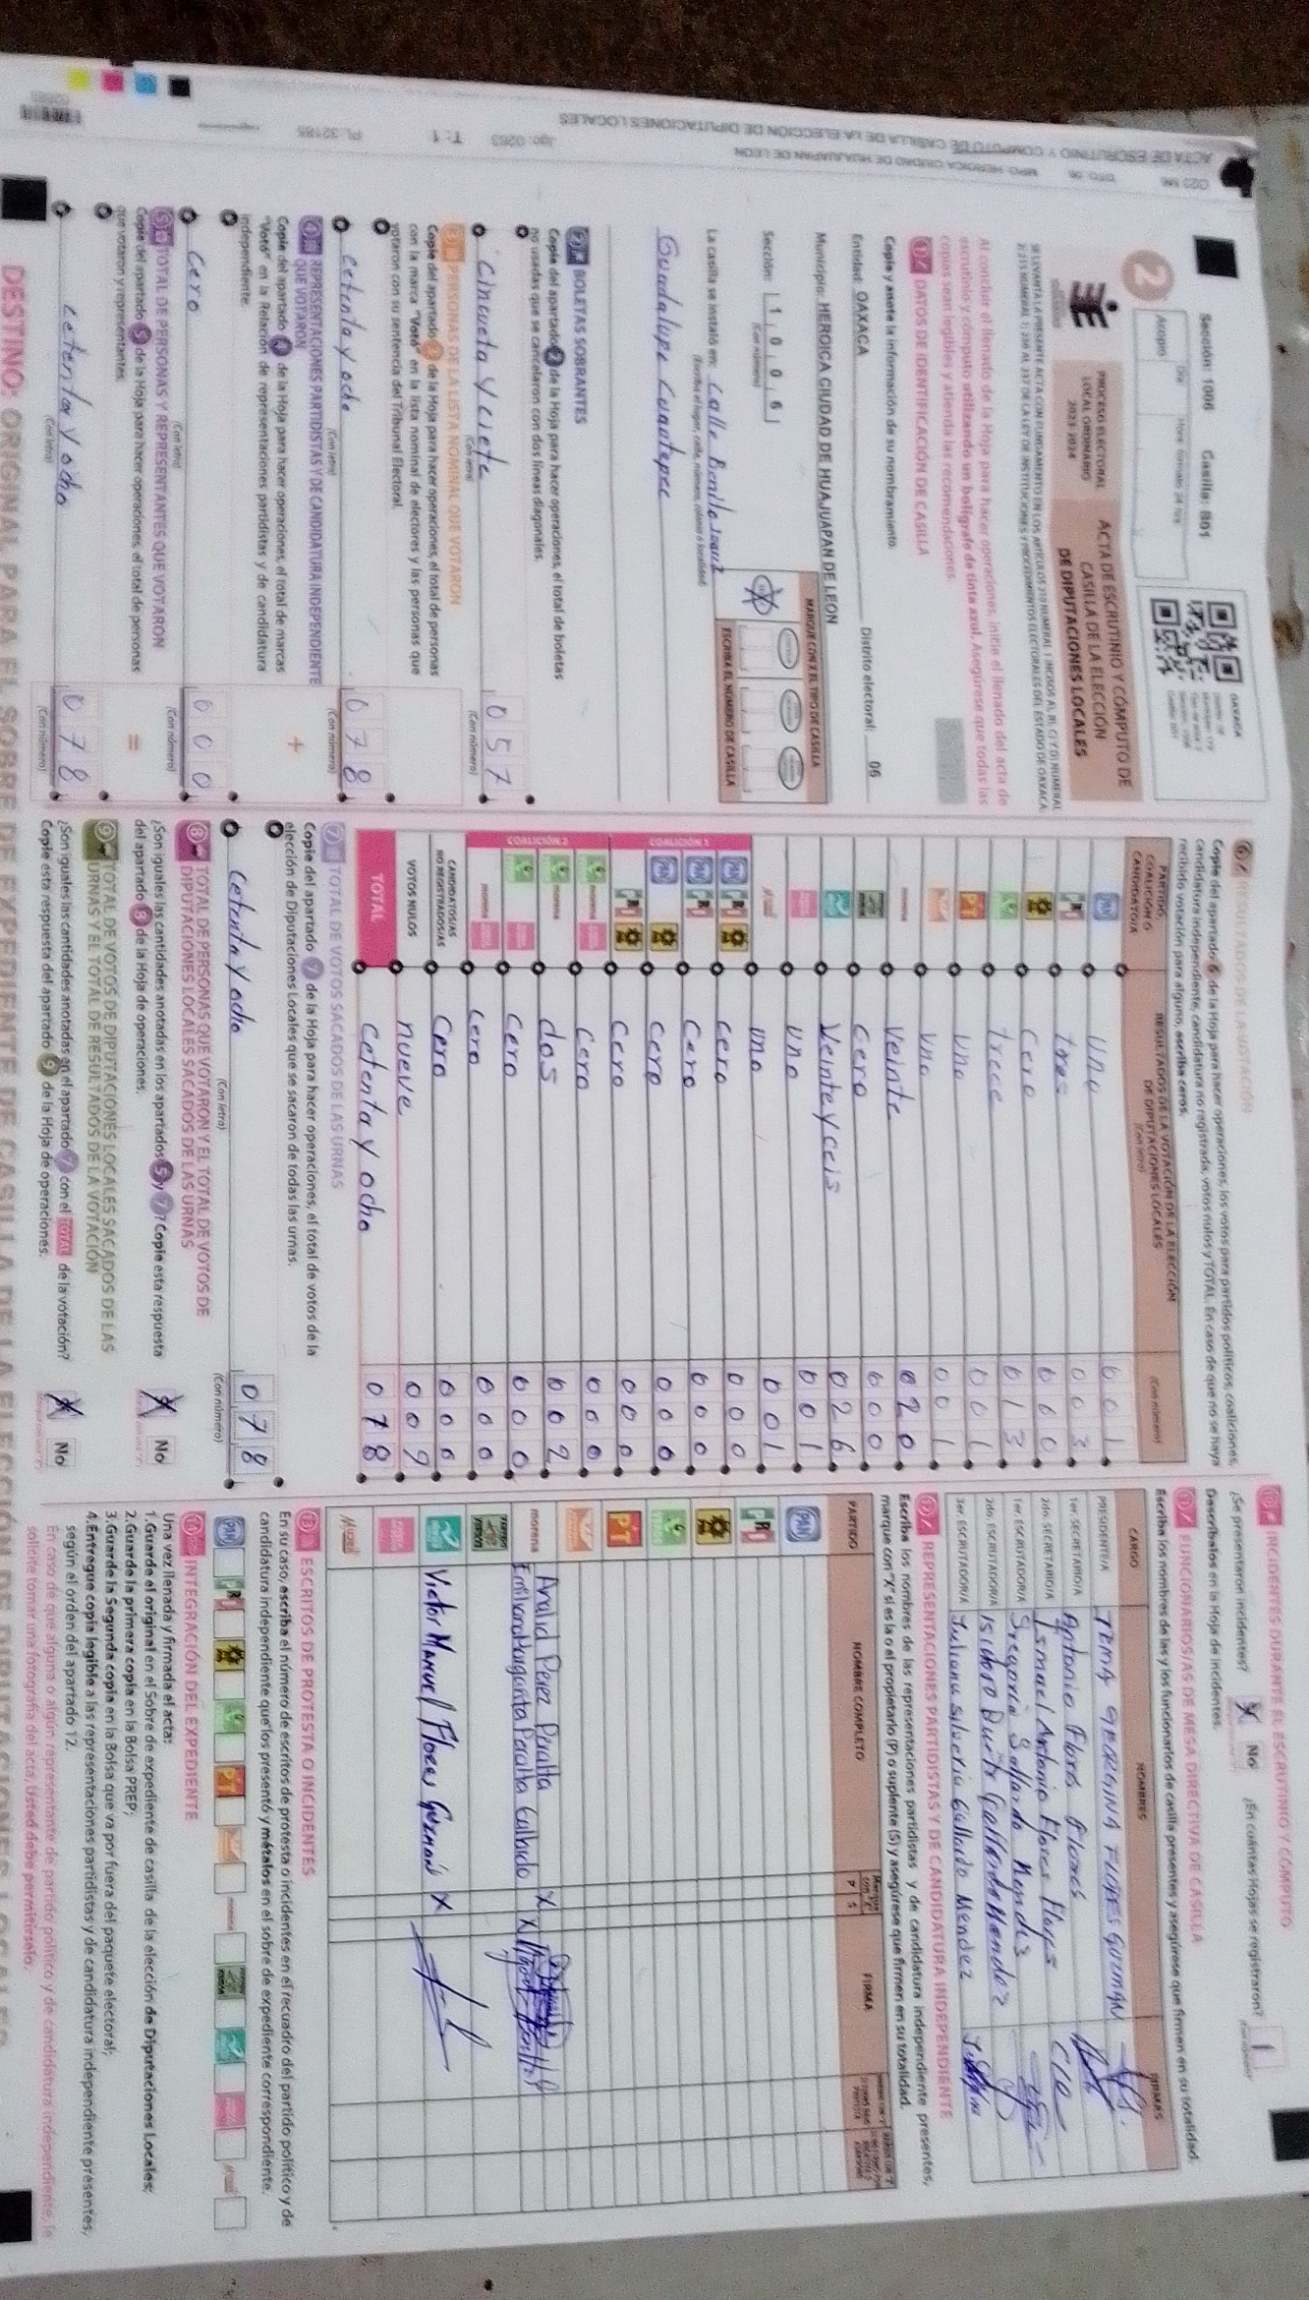 ACTA DE ESCRUTINIO Y CÓMPUTO DE CASILLA DE LA ELECCIÓN DE DIPUTACIONES LOCALES
MPO: HEROICA CIUDAD DE HUAJUAPAN DE LEON
Sección: 1006 Casilla: B01
OAXACA
2
Acopio
PROCESO ELECTORAL
LOCAL ORDINARIO
2023-2024
ACTA DE ESCRUTINIO Y CÓMPUTO DE
CASILLA DE LA ELECCIÓN
DE DIPUTACIONES LOCALES
Al concluir el llenado de la Hoja para hacer operaciones, inicie el llenado del acta de
escrutinio y cómputo utilizando un bolígrafo de tinta azul. Asegúrese que todas las
copias sean legibles y atienda las recomendaciones.
1 DATOS DE IDENTIFICACIÓN DE CASILLA
Copie y anote la información de su nombramiento.
Entidad: OAXACA Distrito electoral: 06
Municipio: HEROICA CIUDAD DE HUAJUAPAN DE LEON
Sección: 1 0 0 6
(Con número)
MARQUE CON X EL TIPO DE CASILLA
ESCRIBA EL NÚMERO DE CASILLA
La casilla se instaló en: Calle
Guadalupe Cuautepec
2 BOLETAS SOBRANTES
Copie del apartado 2 de la Hoja para hacer operaciones, el total de boletas
no usadas que se cancelaron con dos líneas diagonales.
Cincueta y ciete 057
(Con letra) (Con número)
3 PERSONAS DE LA LISTA NOMINAL QUE VOTARON
Copie del apartado 3 de la Hoja para hacer operaciones, el total de personas
con la marca "Votó" en la lista nominal de electores y las personas que
votaron con su sentencia del Tribunal Electoral.
cetenta y ocho 078
(Con letra) (Con número)
4 REPRESENTACIONES PARTIDISTAS Y DE CANDIDATURA INDEPENDIENTE
QUE VOTARON
Copie del apartado 4 de la Hoja para hacer operaciones, el total de marcas
"Votó" en la Relación de representaciones partidistas y de candidatura
independiente.
+
Cero 000
(Con letra) (Con número)
5 TOTAL DE PERSONAS Y REPRESENTANTES QUE VOTARON
Copie del apartado 5 de la Hoja para hacer operaciones, el total de personas
que votaron y representantes.
=
cetenta y ocho 078
(Con letra) (Con número)
6 RESULTADOS DE LA VOTACIÓN
Copie del apartado 6 de la Hoja para hacer operaciones, los votos para partidos políticos, coaliciones,
candidatura independiente, candidatura no registrada, votos nulos y TOTAL. En caso de que no se haya
recibido votación para alguno, escriba ceros.
PARTIDO,
COALICIÓN O
CANDIDATO/A
RESULTADOS DE LA VOTACIÓN DE LA ELECCIÓN
DE DIPUTACIONES LOCALES
(Con letra) (Con número)
PAN Uno 001
PRI tres 003
Cero 000
Trece 013
PT Uno 001
Uno 001
morena Veinte 020
Cero 000
Veinte y ceis 026
Uno 001
uno 001
COALICIÓN 1
PAN PRI cero 000
PAN PRI Cero 000
PAN cero 000
PRI cero 000
COALICIÓN 2
morena Cero 000
morena dos 002
Cero 000
morena cero 000
CANDIDATOS/AS
NO REGISTRADOS/AS Cero 000
VOTOS NULOS nueve 009
TOTAL Cetenta y ocho 078
7 TOTAL DE VOTOS SACADOS DE LAS URNAS
Copie del apartado 7 de la Hoja para hacer operaciones, el total de votos de la
elección de Diputaciones Locales que se sacaron de todas las urnas.
Cetenta y ocho 078
(Con letra) (Con número)
8 TOTAL DE PERSONAS QUE VOTARON Y EL TOTAL DE VOTOS DE
DIPUTACIONES LOCALES SACADOS DE LAS URNAS
¿Son iguales las cantidades anotadas en los apartados 5 y 7? Copie esta respuesta
del apartado 8 de la Hoja de operaciones.
X No
9 TOTAL DE VOTOS DE DIPUTACIONES LOCALES SACADOS DE LAS
URNAS Y EL TOTAL DE RESULTADOS DE LA VOTACIÓN
¿Son iguales las cantidades anotadas en el apartado 7 con el TOTAL de la votación?
Copie esta respuesta del apartado 9 de la Hoja de operaciones.
X No
10 INCIDENTES DURANTE EL ESCRUTINIO Y CÓMPUTO
¿Se presentaron incidentes? X No ¿En cuántas Hojas se registraron? 1
Descríbalos en la Hoja de Incidentes.
11 FUNCIONARIOS/AS DE MESA DIRECTIVA DE CASILLA
Escriba los nombres de las y los funcionarios de casilla presentes y asegúrese que firmen en su totalidad.
CARGO NOMBRES FIRMAS
PRESIDENTE/A IRMA GEORGINA FLORES GUZMAN
1er. SECRETARIO/A Antonio Flores Flores
2do. SECRETARIO/A Ismael Antonio Flores Flores
1er. ESCRUTADOR/A Gregoria Gallardo Mendes
2do. ESCRUTADOR/A Isidoro Gallardo Mendez
3er. ESCRUTADOR/A Juliana Silveria Gallardo Mendez
12 REPRESENTACIONES PARTIDISTAS Y DE CANDIDATURA INDEPENDIENTE
Escriba los nombres de las representaciones partidistas y de candidatura independiente presentes,
marque con "X" si es la o el propietario (P) o suplente (S) y asegúrese que firmen en su totalidad.
PARTIDO NOMBRE COMPLETO P S FIRMA
PAN
PRI
PT
morena Aralid Perez Peralta X
Emiliana Margarita Peralta X
Victor Manuel Flores Guzman X
13 ESCRITOS DE PROTESTA O INCIDENTES
En su caso, escriba el número de escritos de protesta o incidentes en el recuadro del partido político y de
candidatura independiente que los presentó y métalos en el sobre de expediente correspondiente.
PAN PRI PT morena
INTEGRACIÓN DEL EXPEDIENTE
Una vez llenada y firmada el acta:
1. Guarde el original en el Sobre de expediente de casilla de la elección de Diputaciones Locales;
2. Guarde la primera copia en la Bolsa PREP;
3. Guarde la Segunda copia en la Bolsa que va por fuera del paquete electoral;
4. Entregue copia legible a las representaciones partidistas y de candidatura independiente presentes,
según el orden del apartado 12.
En caso de que alguna o algún representante de partido político y de candidatura independiente, le
solicite tomar una fotografía del acta, Usted debe permitírselo.
DESTINO: ORIGINAL PARA EL SOBRE DE EXPEDIENTE DE CASILLA DE LA ELECCIÓN DE DIPUTACIONES LOCALES